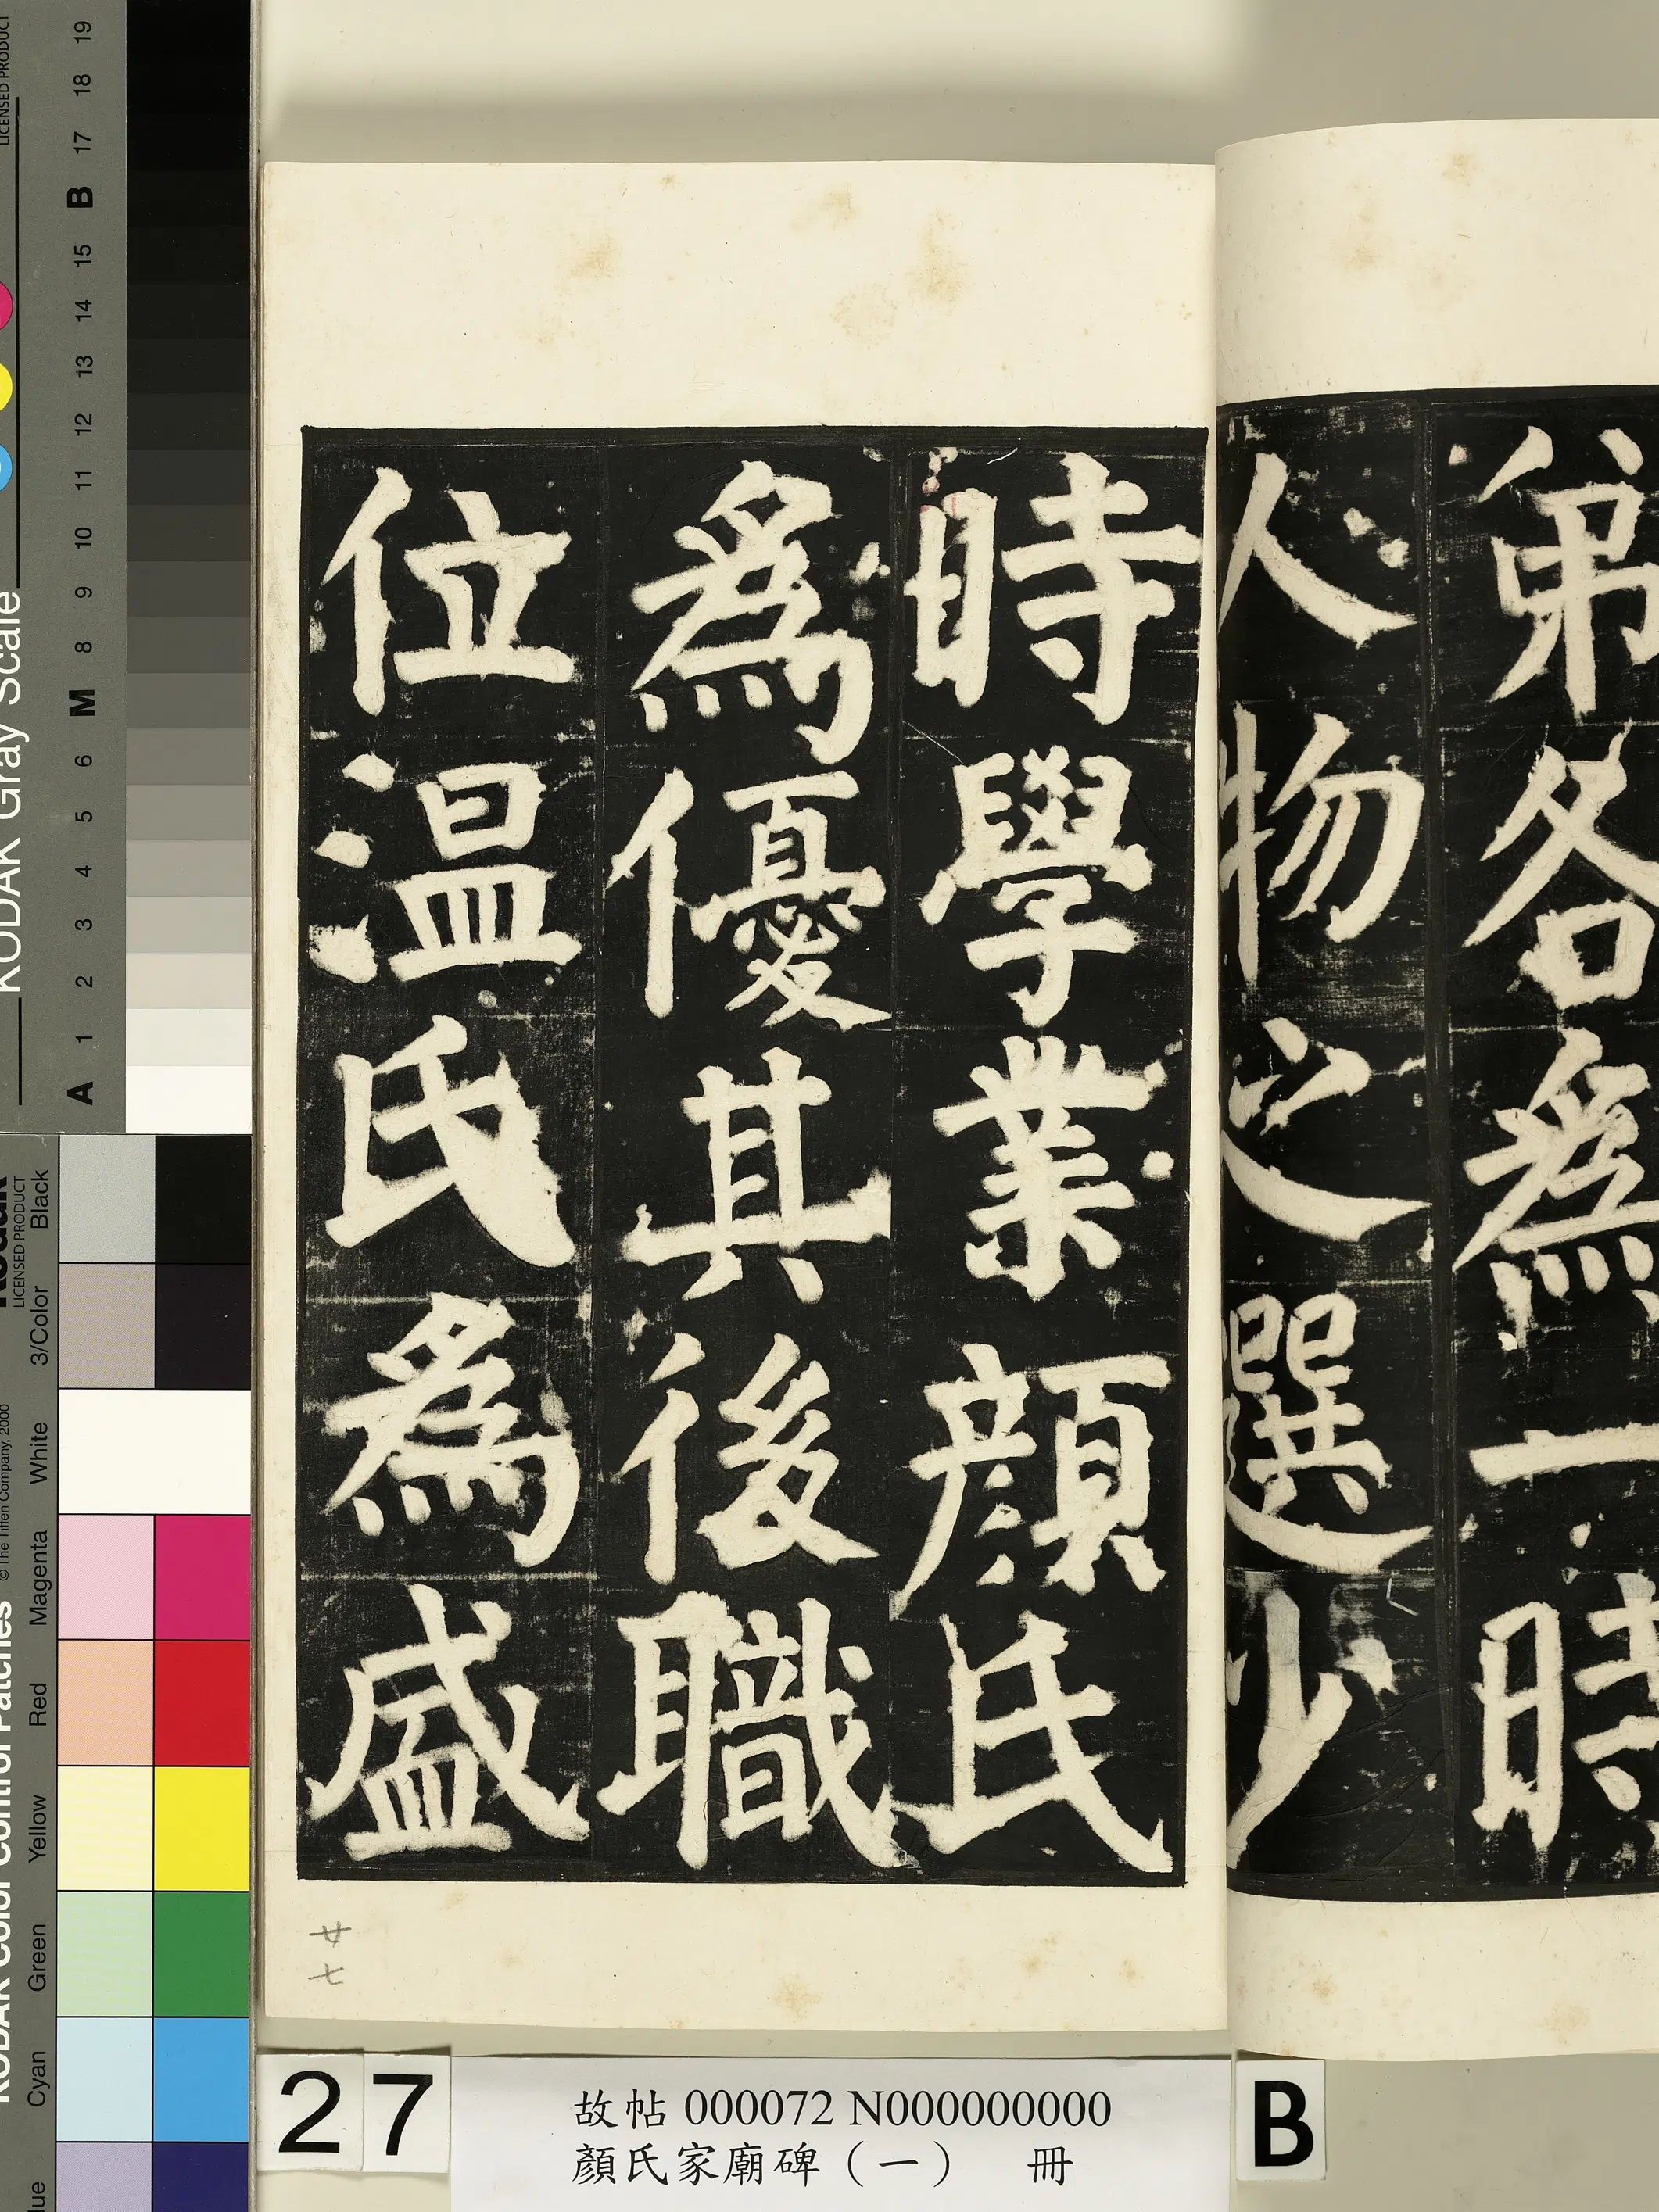 弟各為一時
人物之選少
時學業顏氏
為優其後職
位温氏為盛
廿七
27
故帖 000072 N000000000
顏氏家廟碑（一） 冊
B
KODAK Gray Scale
LICENSED PRODUCT
A 1 2 3 4 5 6 M 8 9 10 11 12 13 14 15 B 17 18 19
KODAK Color Control Patches
© The Tiffen Company, 2000
Kodak
LICENSED PRODUCT
Cyan Green Yellow Red Magenta White 3/Color Black